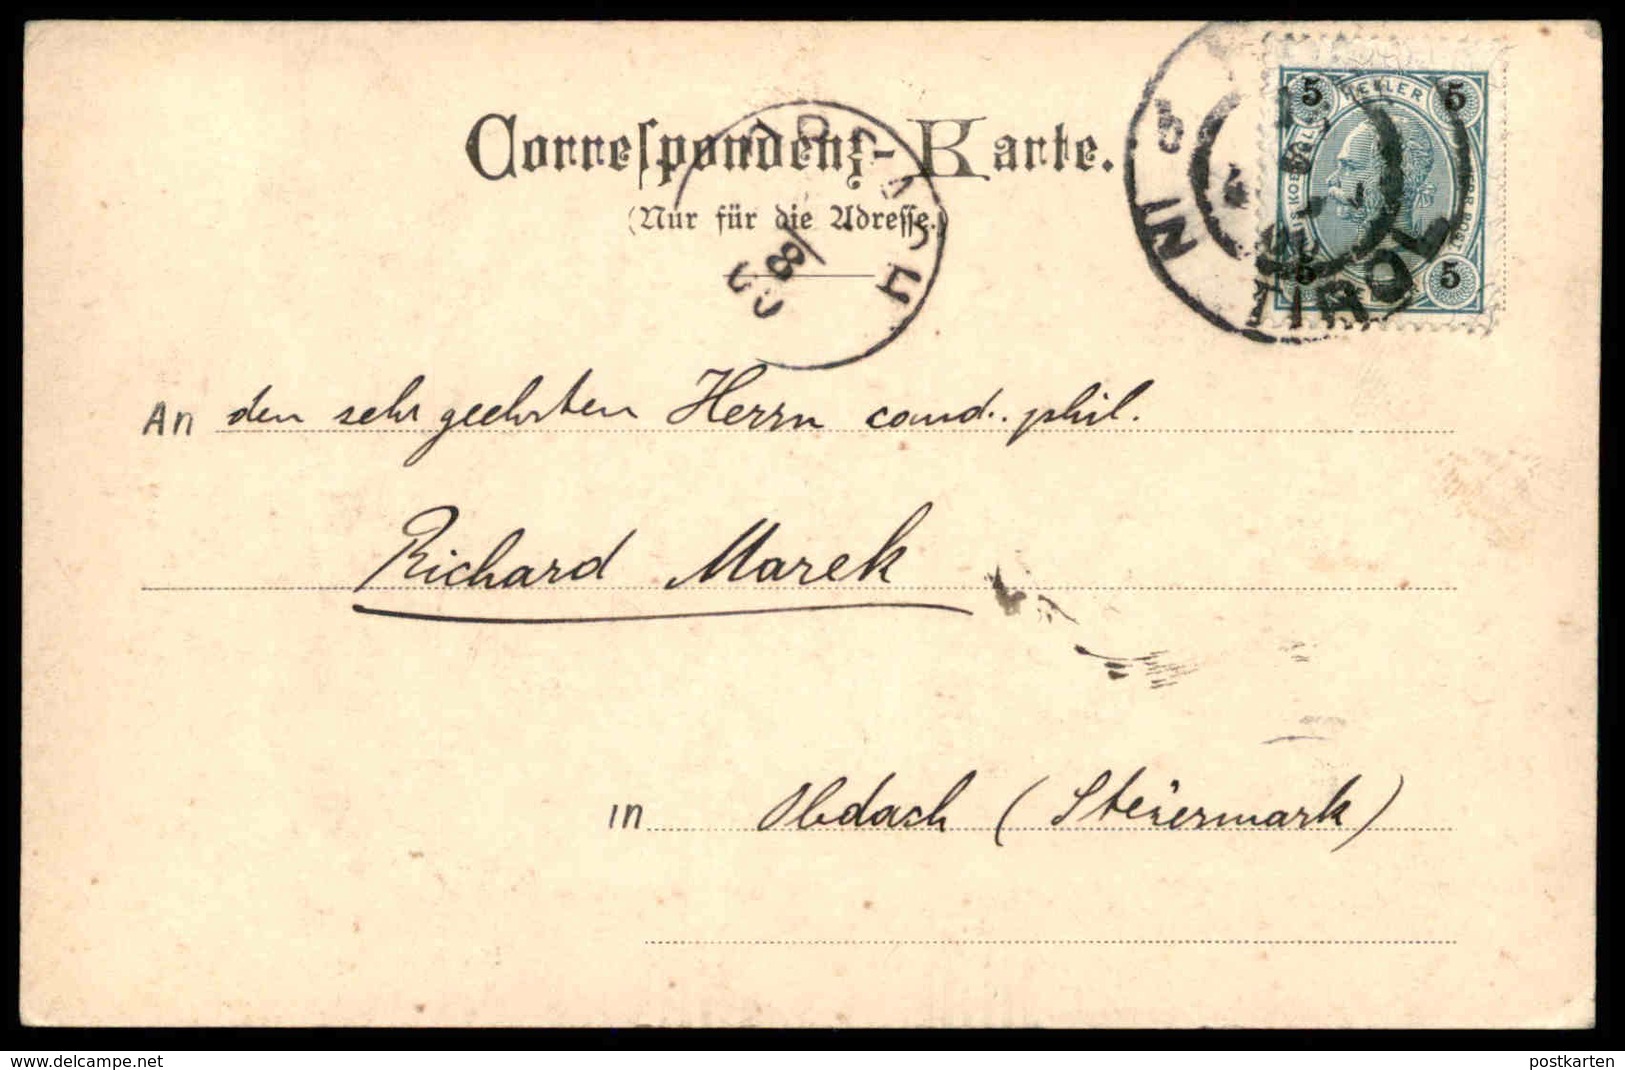 Correspondenz-Karte.
(Nur für die Adresse.)
5 HELLER 5
5 5
TIROL
IN
8
00
An den sehr geehrten Herrn cand. phil.
Richard Marek
in Obdach (Steiermark)
www.delcampe.net
postkarten